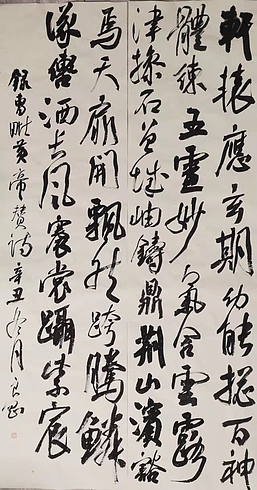 軒轅應玄期幼能揔百神
體鍊五靈妙氣含雲露
津摻石曾城岫鑄鼎荊山濱豁
焉天扉開飄然跨騰鱗
轡洒長風褰裳躡紫宸
錄曹毗黃帝贊詩辛丑月